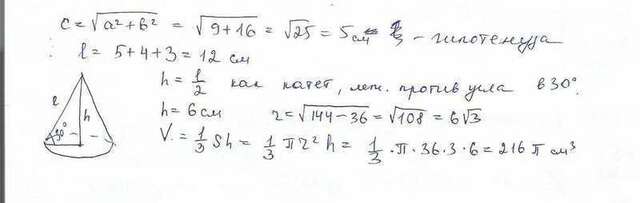 c = √a²+b² = √9+16 = √25 = 5 см - гипотенуза
l = 5+4+3 = 12 см
h = l/2 как катет, леж. против угла в 30°.
h = 6 см r = √144-36 = √108 = 6√3
V = 1/3 Sh = 1/3 π r² h = 1/3 · π · 36 · 3 · 6 = 216 π см³
l h 30°